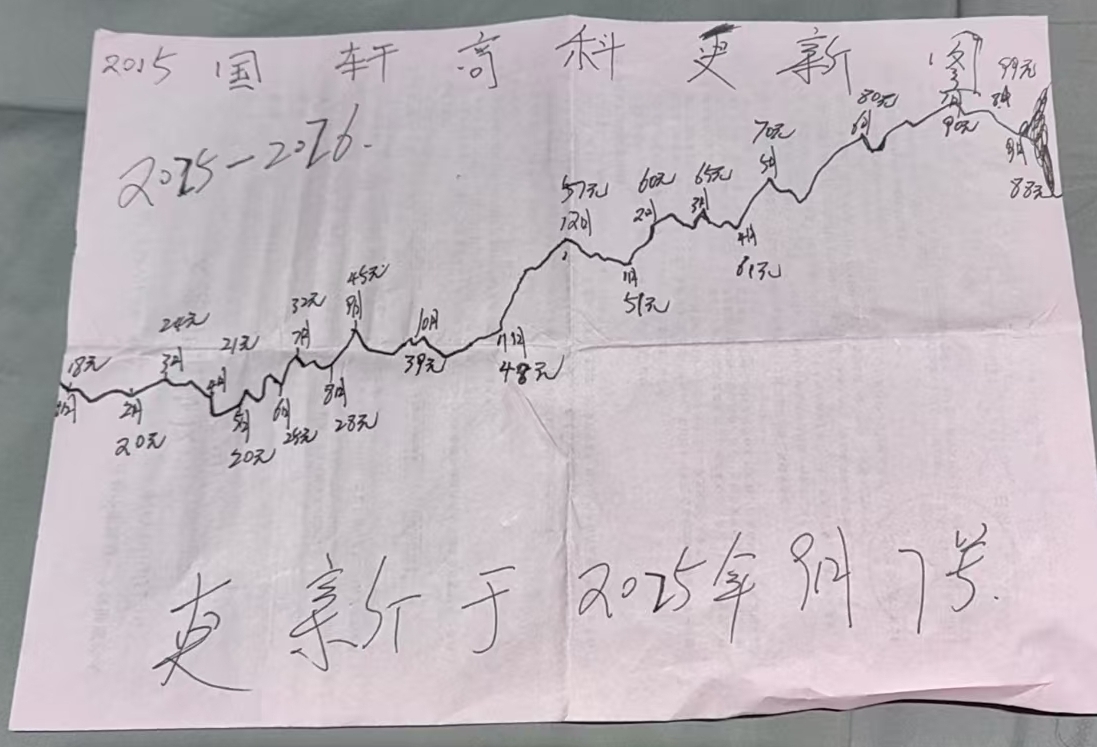 2025 国轩高科更新图
2025-2026.
18元
24元
21元
32元
45元
57元
60元
65元
70元
80元
99元
3月
7月
9月
10月
12月
2月
3月
5月
6月
7月
8月
9月
90元
88元
2月
20元
4月
5月
20元
6月
25元
8月
28元
39元
11月
48元
1月
51元
4月
61元
更新于2025年9月7号.